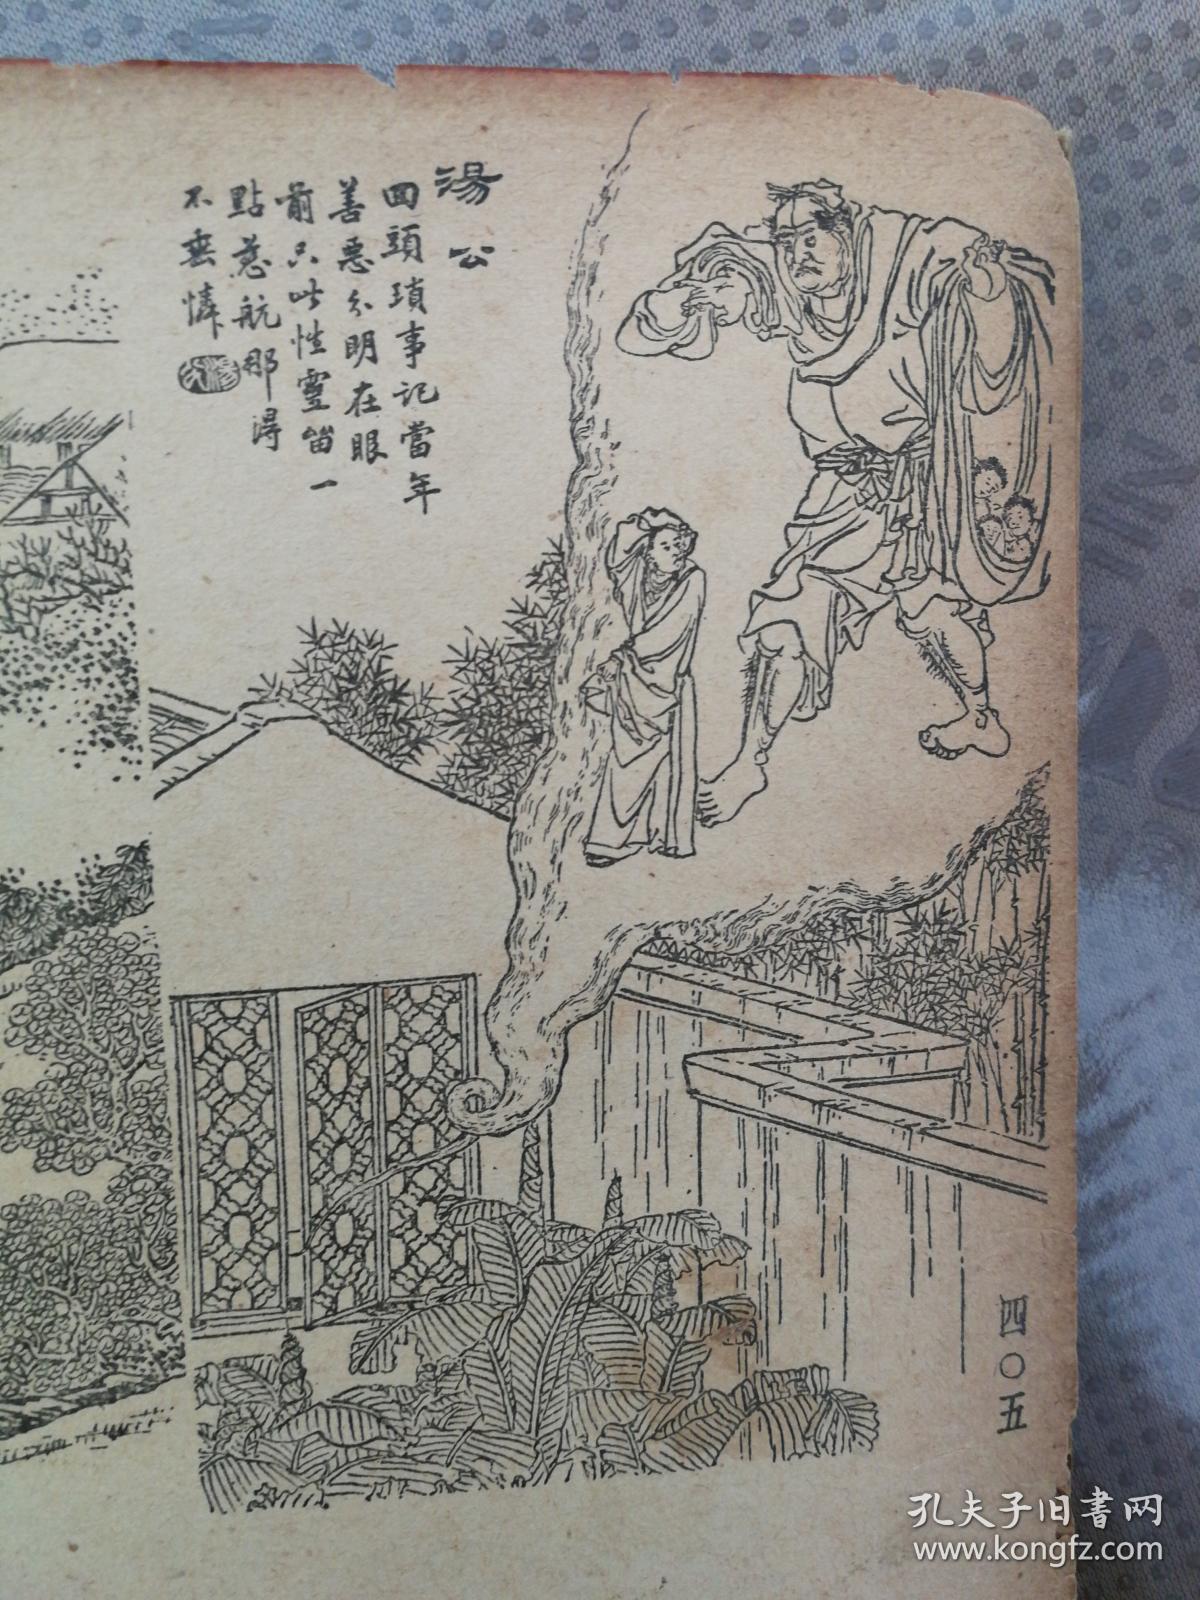 湯公
回頭瑣事記當年
善惡分明在眼
前只此性靈留一
點慈航那得
不垂憐
四〇五
孔夫子旧書网
www.kongfz.com